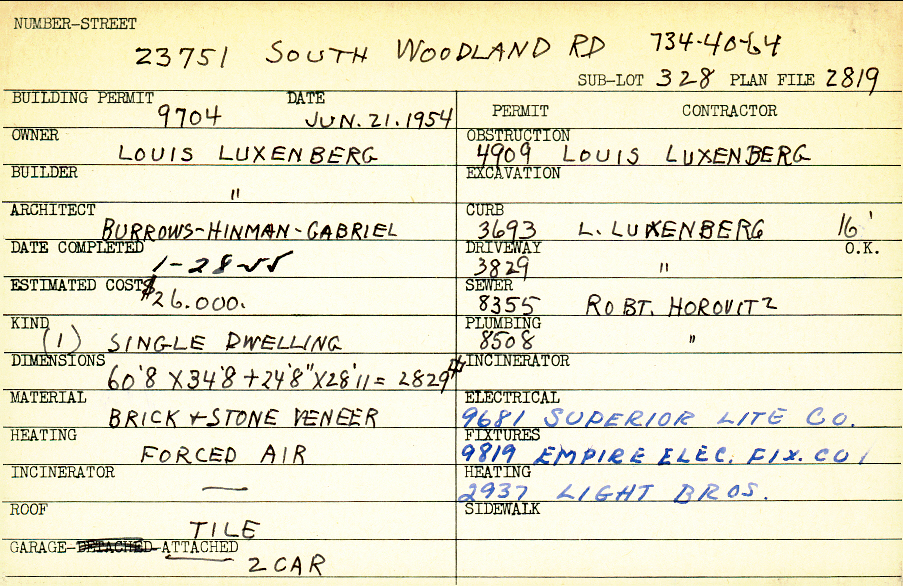 NUMBER-STREET
23751 SOUTH WOODLAND RD 734-40-64
SUB-LOT 328 PLAN FILE 2819
BUILDING PERMIT DATE
9704 JUN. 21. 1954
OWNER
LOUIS LUXENBERG
BUILDER
"
ARCHITECT
BURROWS-HINMAN-GABRIEL
DATE COMPLETED
1-28-55
ESTIMATED COST
$26.000.
KIND
(1) SINGLE DWELLING
DIMENSIONS
60'8 X34'8 +24'8"X28'11= 2829#
MATERIAL
BRICK + STONE VENEER
HEATING
FORCED AIR
INCINERATOR
—
ROOF
TILE
GARAGE-DETACHED-ATTACHED
2 CAR
PERMIT CONTRACTOR
OBSTRUCTION
4909 LOUIS LUXENBERG
EXCAVATION
CURB
3693 L. LUXENBERG 16'
DRIVEWAY O.K.
3829 "
SEWER
8355 ROBT. HOROVITZ
PLUMBING
8508 "
INCINERATOR
ELECTRICAL
9681 SUPERIOR LITE CO.
FIXTURES
9819 EMPIRE ELEC. FIX. CO.
HEATING
2937 LIGHT BROS.
SIDEWALK